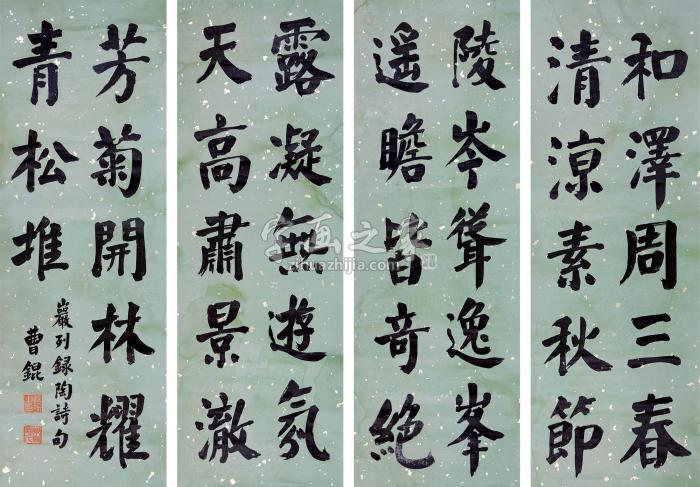 和澤周三春
清涼素秋節
露凝無遊氛
天高肅景澈
陵岑聳逸峯
遥瞻皆奇絕
芳菊開林耀
青松堆
巖列録陶詩句
曹錕
字画之家
zihuazhijia.com